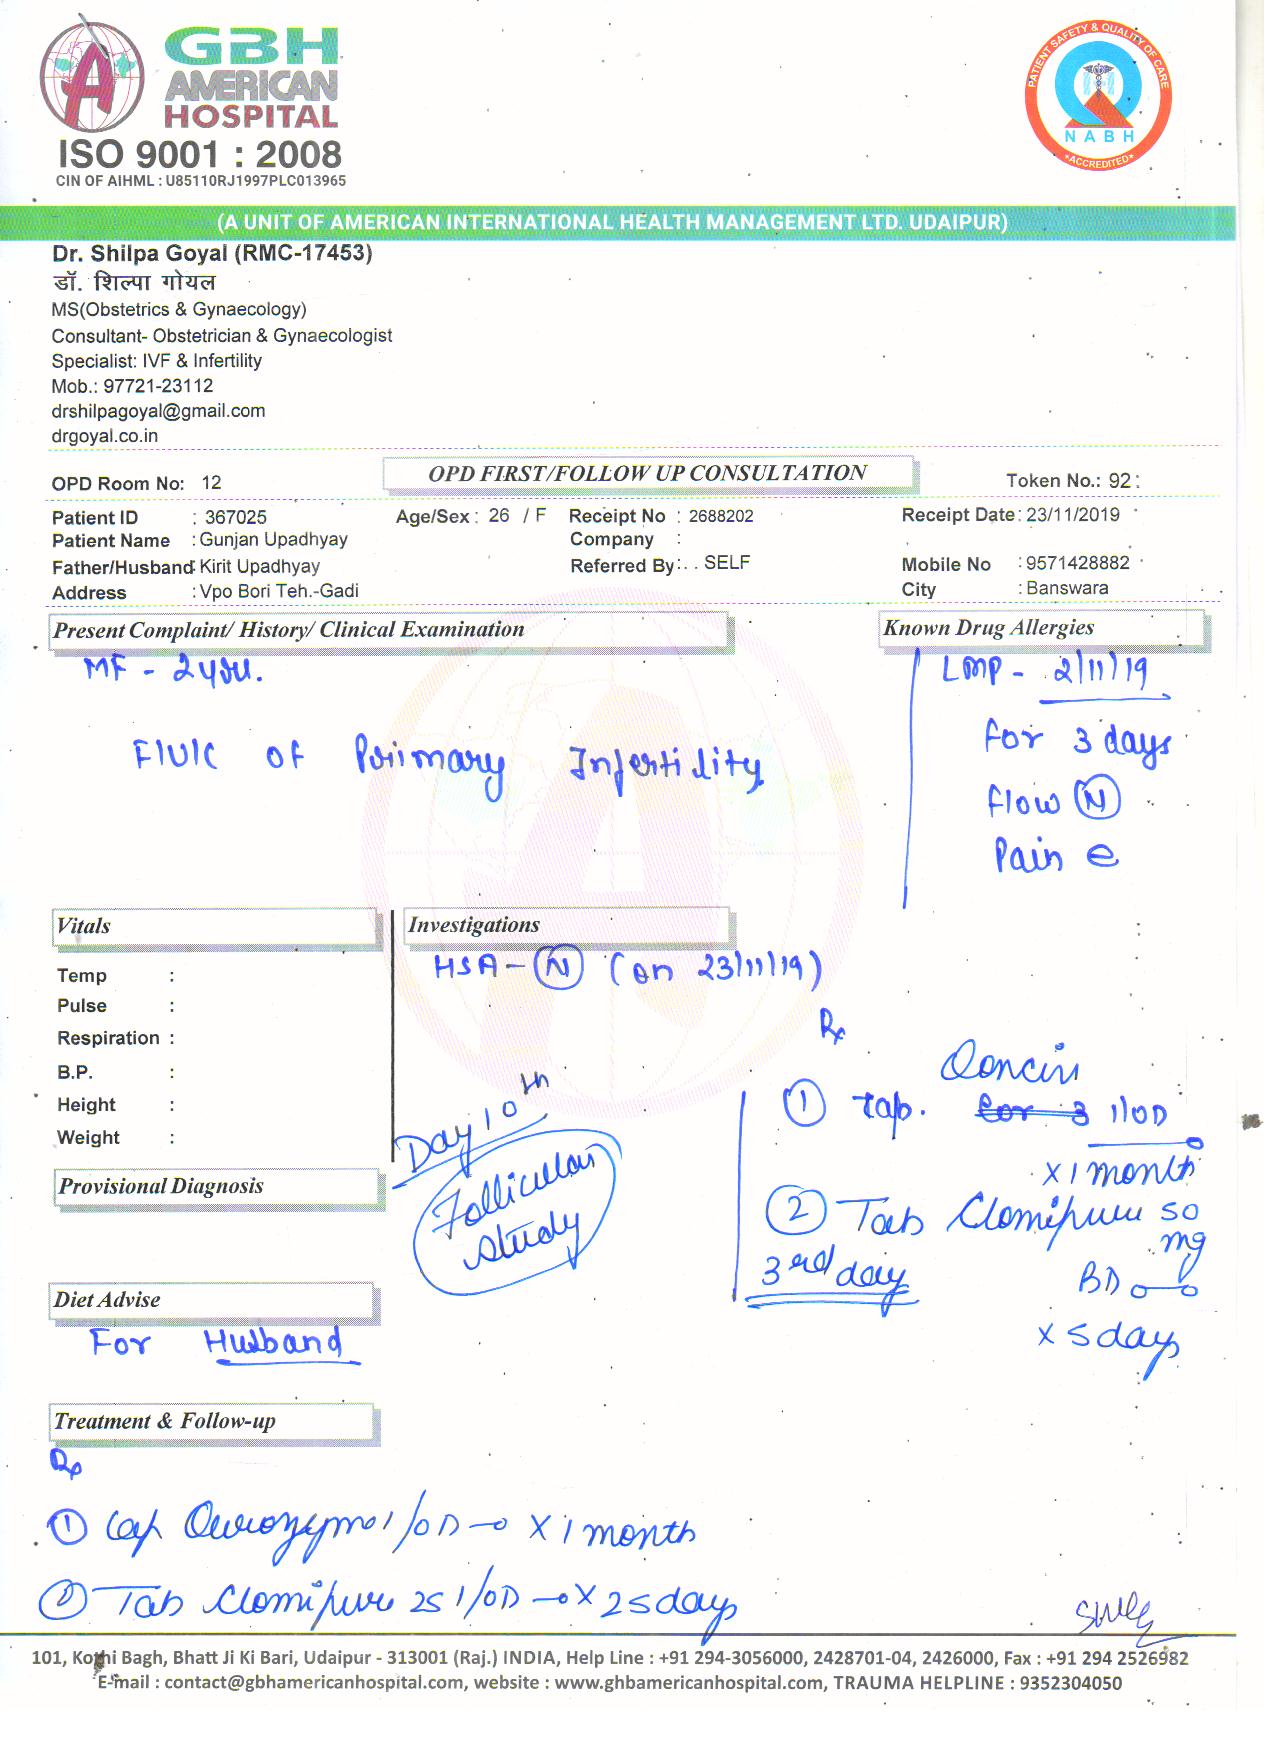 GBH
AMERICAN
HOSPITAL
ISO 9001 : 2008
CIN OF AIHML : U85110RJ1997PLC013965
PATIENT SAFETY & QUALITY OF CARE
NABH
*ACCREDITED*
(A UNIT OF AMERICAN INTERNATIONAL HEALTH MANAGEMENT LTD. UDAIPUR)
Dr. Shilpa Goyal (RMC-17453)
डॉ. शिल्पा गोयल
MS(Obstetrics & Gynaecology)
Consultant- Obstetrician & Gynaecologist
Specialist: IVF & Infertility
Mob.: 97721-23112
drshilpagoyal@gmail.com
drgoyal.co.in
OPD Room No: 12 OPD FIRST/FOLLOW UP CONSULTATION Token No.: 92
Patient ID : 367025 Age/Sex : 26 / F Receipt No : 2688202 Receipt Date : 23/11/2019
Patient Name : Gunjan Upadhyay Company :
Father/Husband : Kirit Upadhyay Referred By : SELF Mobile No : 9571428882
Address : Vpo Bori Teh.-Gadi City : Banswara
Present Complaint/ History/ Clinical Examination Known Drug Allergies
MF - 2 LMP - 2/11/19
F/U/C OF Primary Infertility For 3 days
Flow (N)
Pain
Vitals Investigations
HSA - (N) (on 23/11/19)
Temp :
Pulse :
Respiration :
B.P. :
Height :
Weight :
Rx
① Tab. 1/OD
x 1 month
Day 10th
Follicular
study
② Tab 50
mg
3rd day BD
x 5 days
Provisional Diagnosis
Diet Advise
For Husband
Treatment & Follow-up
Rx
① Cap 1/OD x 1 month
② Tab 25 1/OD x 25 days
101, Kothi Bagh, Bhatt Ji Ki Bari, Udaipur - 313001 (Raj.) INDIA, Help Line : +91 294-3056000, 2428701-04, 2426000, Fax : +91 294 2526982
E-mail : contact@gbhamericanhospital.com, website : www.ghbamericanhospital.com, TRAUMA HELPLINE : 9352304050